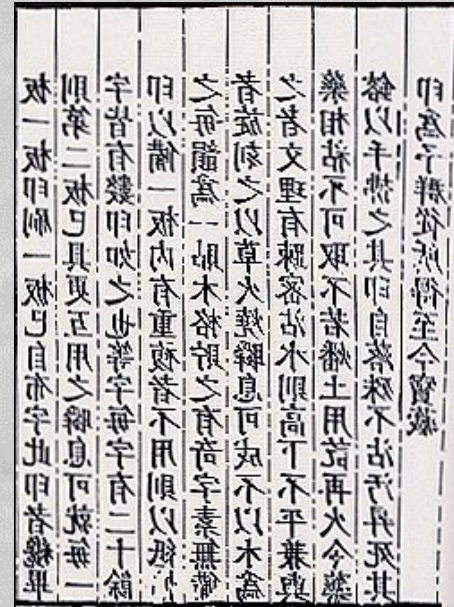 板一板印刷一板已自布字此印者纔畢
則第二板已具更互用之瞬息可就每一
字皆有數印如之也等字每字有二十餘
印以備一板内有重複者不用則以紙
之每韻爲一貼木格貯之有奇字素無備
者旋刻之以草火燒瞬息可成不以木爲
之者文理有踈密沾水則高下不平兼與
藥相粘不可取不若燔土用訖再火令藥
鎔以手拂之其印自落殊不沾汚昇死其
印爲予群從所得至今寶藏